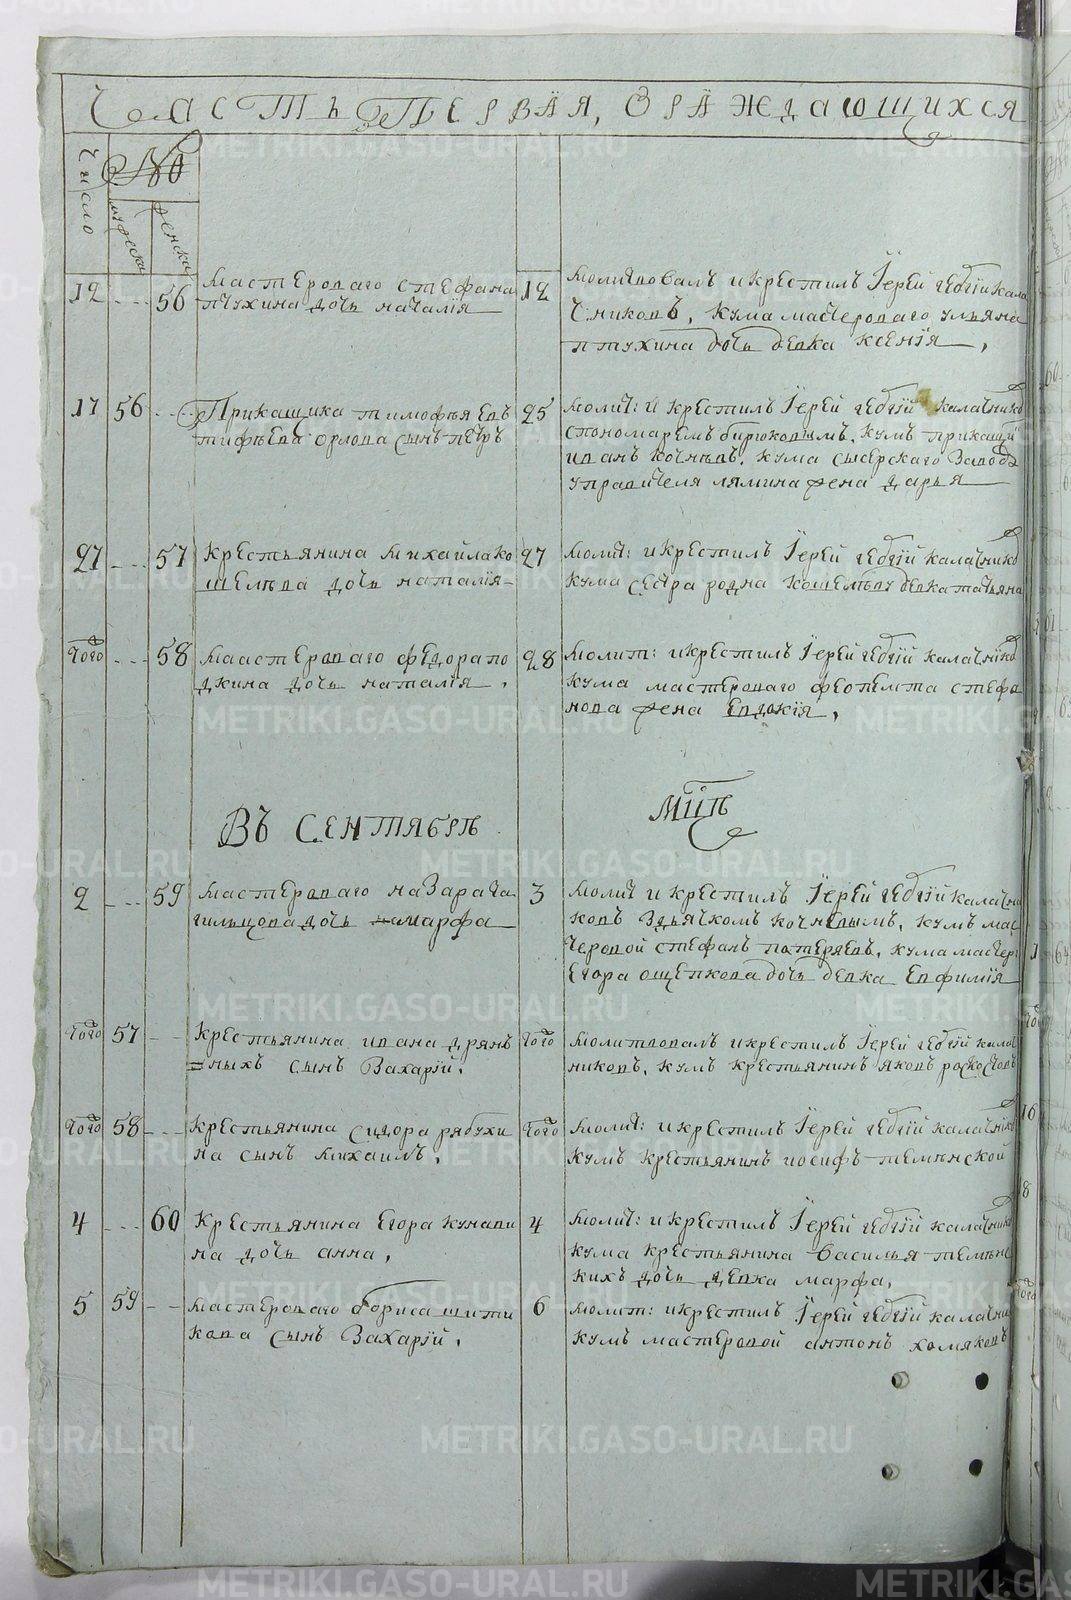 Часть Первая, О раждающихся
Число
№
мужеска
женска
12 56 Мастероваго Стефана
птухина дочь наталiя
12 Молитвовалъ и крестилъ Iерей геѡргiй кала
чниковъ, кума мастероваго ульяна
птухина дочь девка ксенiя,
17 56 Прикащика тимофья Евъ
тифѣева орлова сынъ петръ
25 Молит: и крестилъ Iерей геѡргiй калачнико
спономаремъ бирюковымъ, кумъ прикащи
иванъ кочневъ, кума сысерскаго завода
управителя лямина жена дарья
27 57 Крестьянина михайла ко
шелѣва дочь наталiя
27 Молит: и крестилъ Iерей геѡргiй калачнико
кума сестра родна кошелѣву девка татьяна
того 58 Мастероваго федора по
джина дочь наталiя,
28 Молит: и крестилъ Iерей геѡргiй калачнико
кума мастероваго феопемта стефа
нова жена Евдокiя,
Въ Сентябрѣ мцѣ
2 59 Мастероваго назара та
гильцова дочь марфа
3 Молит и крестилъ Iерей геѡргiй калачни
ковъ здьячкомъ кочневымъ, кумъ мас
теровой стефанъ потеряевъ, кума мастер
Егора ощепкова дочь девка Евфимiя
того 57 Крестьянина ивана дрянъ
ныхъ сынъ Захарiй.
того Молитвовалъ и крестилъ Iерей геѡргiй калач
никовъ, кумъ крестьянинъ яковъ роскостовъ
того 58 Крестьянина сидора рябухи
на сынъ михаилъ.
того Молит: и крестилъ Iерей геѡргiй калачнико
кумъ крестьянинъ иосифъ темѣнской
4 60 Крестьянина Егора кунави
на дочь анна,
4 Молит: и крестилъ Iерей геѡргiй калачнико
кума крестьянина василья темѣнс
кихъ дочь девка марфа,
5 59 Мастероваго бориса шити
кова сынъ Захарiй.
6 Молит: и крестилъ Iерей геѡргiй калачни
кумъ мастеровой антонъ хомяковъ
METRIKI.GASO-URAL.RU